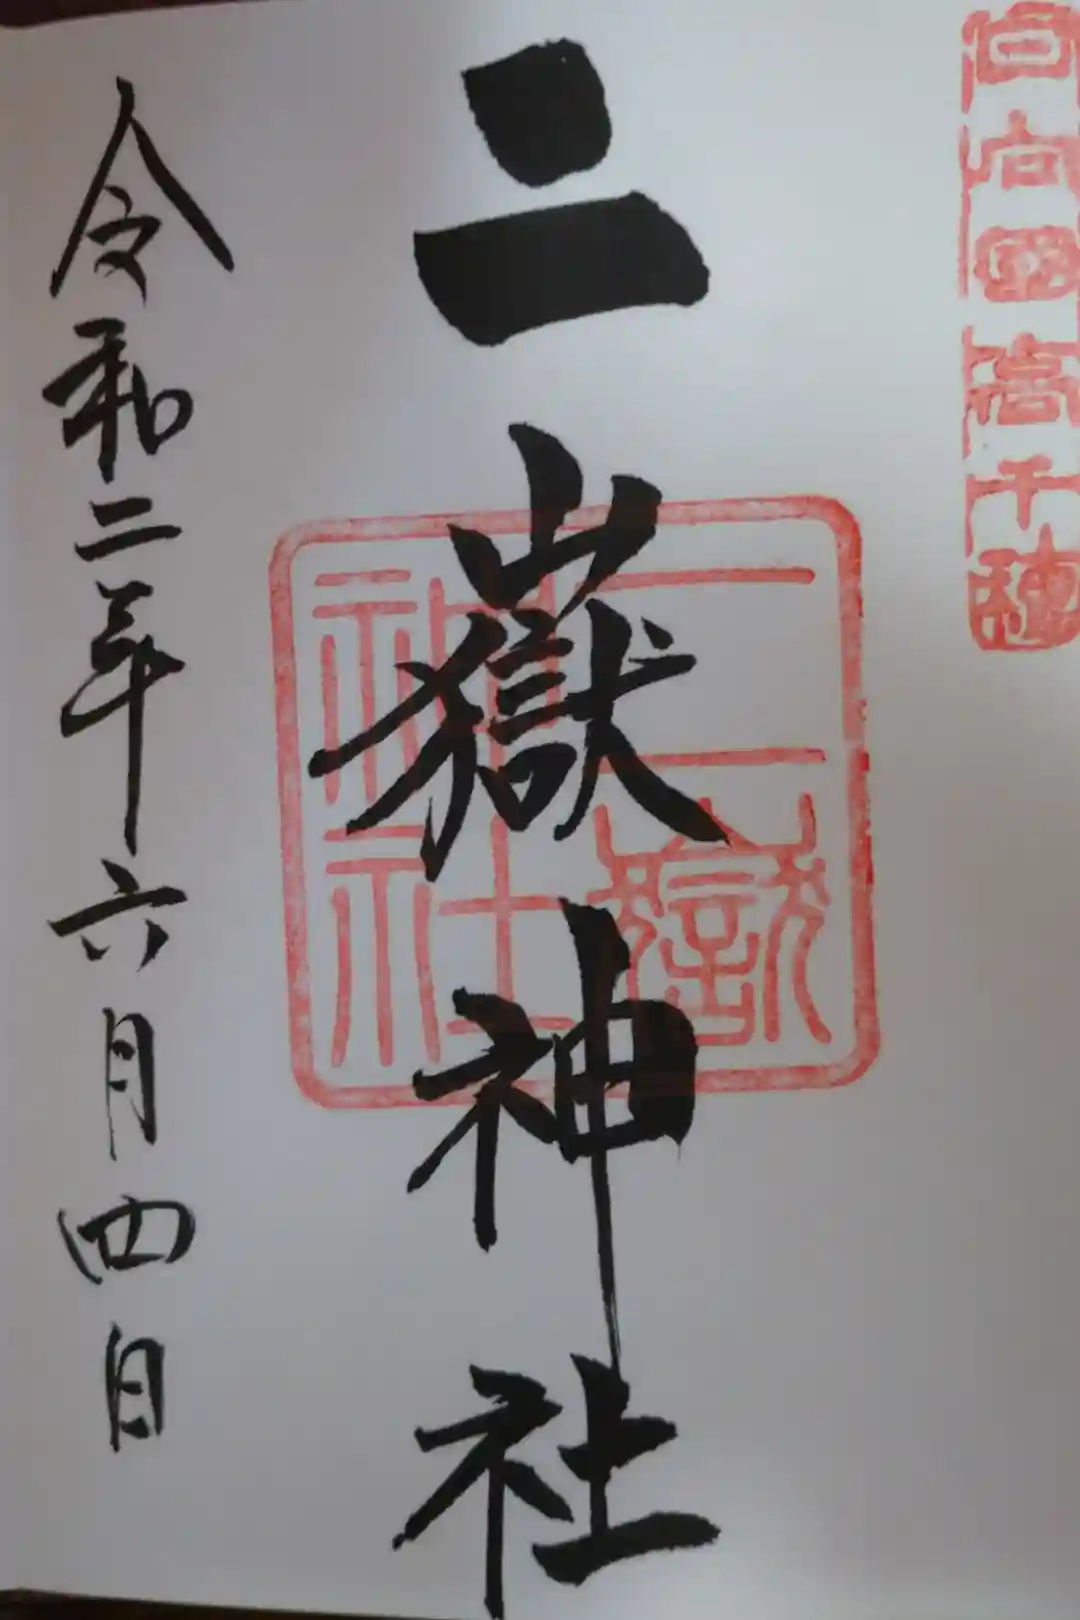 日向国高千穂
二嶽神社
二嶽神社
令和二年六月四日